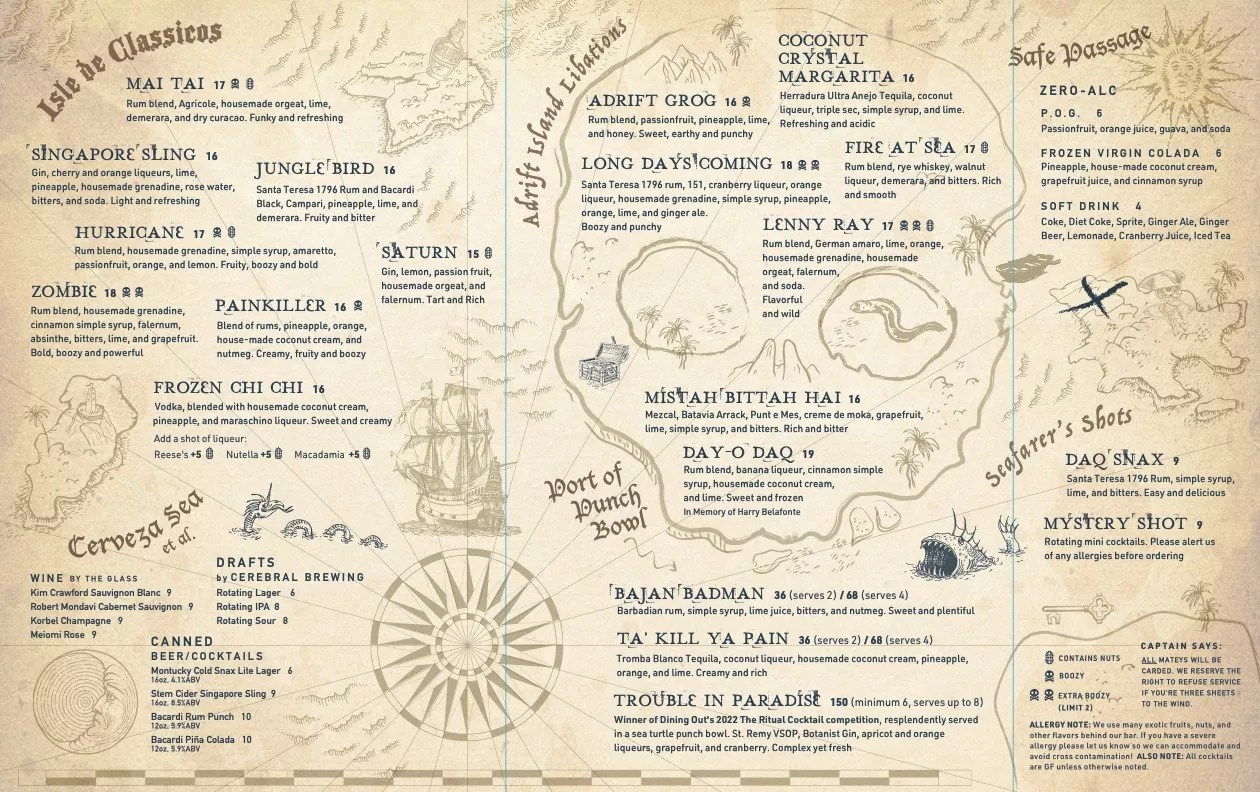 Isle de Classicos
MAI TAI 17
Rum blend, Agricole, housemade orgeat, lime,
demerara, and dry curacao. Funky and refreshing
SINGAPORE SLING 16
Gin, cherry and orange liqueurs, lime,
pineapple, housemade grenadine, rose water,
bitters, and soda. Light and refreshing
JUNGLE BIRD 16
Santa Teresa 1796 Rum and Bacardi
Black, Campari, pineapple, lime, and
demerara. Fruity and bitter
HURRICANE 17
Rum blend, housemade grenadine, simple syrup, amaretto,
passionfruit, orange, and lemon. Fruity, boozy and bold
SATURN 15
Gin, lemon, passion fruit,
housemade orgeat, and
falernum. Tart and Rich
ZOMBIE 18
Rum blend, housemade grenadine,
cinnamon simple syrup, falernum,
absinthe, bitters, lime, and grapefruit.
Bold, boozy and powerful
PAINKILLER 16
Blend of rums, pineapple, orange,
house-made coconut cream, and
nutmeg. Creamy, fruity and boozy
FROZEN CHI CHI 16
Vodka, blended with housemade coconut cream,
pineapple, and maraschino liqueur. Sweet and creamy
Add a shot of liqueur:
Reese's +5 Nutella +5 Macadamia +5
Cerveza Sea
et al.
WINE BY THE GLASS
Kim Crawford Sauvignon Blanc 9
Robert Mondavi Cabernet Sauvignon 9
Korbel Champagne 9
Meiomi Rose 9
DRAFTS
by CEREBRAL BREWING
Rotating Lager 6
Rotating IPA 8
Rotating Sour 8
CANNED
BEER/COCKTAILS
Montucky Cold Snax Lite Lager 6
16oz. 4.1%ABV
Stem Cider Singapore Sling 9
16oz. 8.5%ABV
Bacardi Rum Punch 10
12oz. 5.9%ABV
Bacardi Piña Colada 10
12oz. 5.9%ABV
Adrift Island Libations
ADRIFT GROG 16
Rum blend, passionfruit, pineapple, lime,
and honey. Sweet, earthy and punchy
COCONUT
CRYSTAL
MARGARITA 16
Herradura Ultra Anejo Tequila, coconut
liqueur, triple sec, simple syrup, and lime.
Refreshing and acidic
LONG DAYS COMING 18
Santa Teresa 1796 rum, 151, cranberry liqueur, orange
liqueur, housemade grenadine, simple syrup, pineapple,
orange, lime, and ginger ale.
Boozy and punchy
FIRE AT SEA 17
Rum blend, rye whiskey, walnut
liqueur, demerara, and bitters. Rich
and smooth
LENNY RAY 17
Rum blend, German amaro, lime, orange,
pineapple, housemade
orgeat, falernum,
and soda.
Flavorful
and wild
MISTAH BITTAH HAI 16
Mezcal, Batavia Arrack, Punt e Mes, creme de moka, grapefruit,
lime, simple syrup, and bitters. Rich and bitter
DAY-O DAQ 19
Rum blend, banana liqueur, cinnamon simple
syrup, housemade coconut cream,
and lime. Sweet and frozen
In Memory of Harry Belafonte
Port of
Punch
Bowl
BAJAN BADMAN 36 (serves 2) / 68 (serves 4)
Barbadian rum, simple syrup, lime juice, bitters, and nutmeg. Sweet and plentiful
TA' KILL YA PAIN 36 (serves 2) / 68 (serves 4)
Tromba Blanco Tequila, coconut liqueur, housemade coconut cream, pineapple,
orange, and lime. Creamy and rich
TROUBLE IN PARADISE 150 (minimum 6, serves up to 8)
Winner of Dining Out's 2022 The Ritual Cocktail competition, resplendently served
in a sea turtle punch bowl. St. Remy VSOP, Botanist Gin, apricot and orange
liqueurs, grapefruit, and cranberry. Complex yet fresh
Safe Passage
ZERO-ALC
P.O.G. 6
Passionfruit, orange juice, guava, and soda
FROZEN VIRGIN COLADA 6
Pineapple, house-made coconut cream,
grapefruit juice, and cinnamon syrup
SOFT DRINK 4
Coke, Diet Coke, Sprite, Ginger Ale, Ginger
Beer, Lemonade, Cranberry Juice, Iced Tea
Seafarer's Shots
DAQ SNAX 9
Santa Teresa 1796 Rum, simple syrup,
lime, and bitters. Easy and delicious
MYSTERY SHOT 9
Rotating mini cocktails. Please alert us
of any allergies before ordering
CONTAINS NUTS
BOOZY
EXTRA BOOZY
(LIMIT 2)
CAPTAIN SAYS:
ALL MATEYS WILL BE
CARDED. WE RESERVE THE
RIGHT TO REFUSE SERVICE
IF YOU'RE THREE SHEETS
TO THE WIND.
ALLERGY NOTE: We use many exotic fruits, nuts, and
other flavors behind our bar. If you have a severe
allergy please let us know so we can accommodate and
avoid cross contamination! ALSO NOTE: All cocktails
are GF unless otherwise noted.